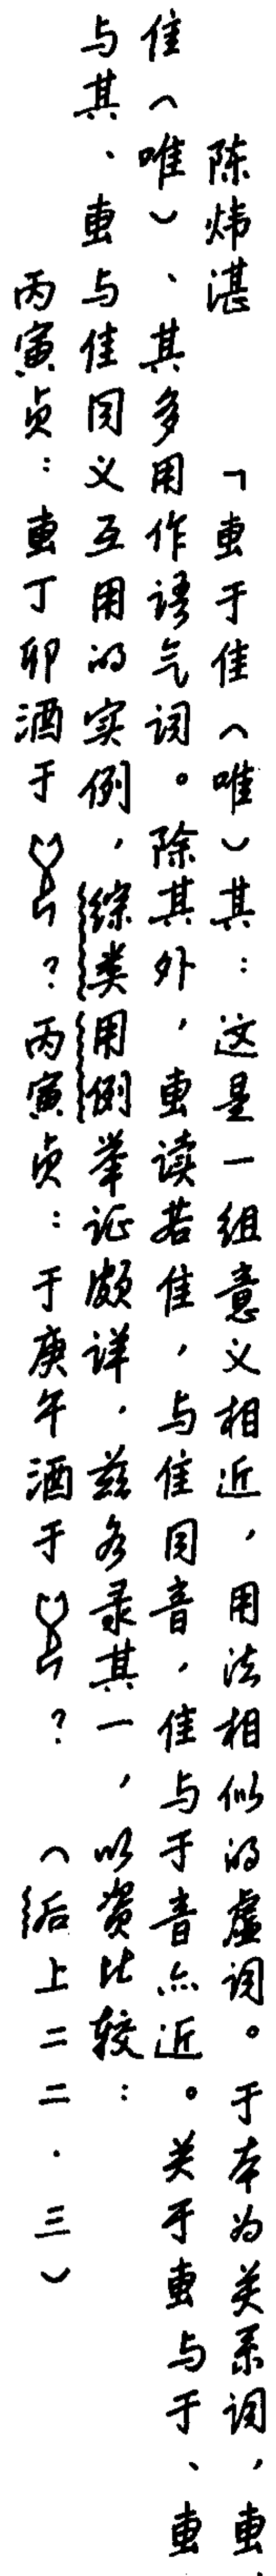 陈炜湛 「叀于隹（唯）其：这是一组意义相近，用法相似的虚词。于本为关系词，叀、
隹（唯）、其多用作语气词。除其外，叀读若隹，与隹同音，隹与于音亦近。关于叀与于、叀
与其、叀与隹同义互用的实例，综类用例举证颇详，兹各录其一，以资比较：
丙寅贞：叀丁卯酒于？丙寅贞：于庚午酒于？（后上二二·三）